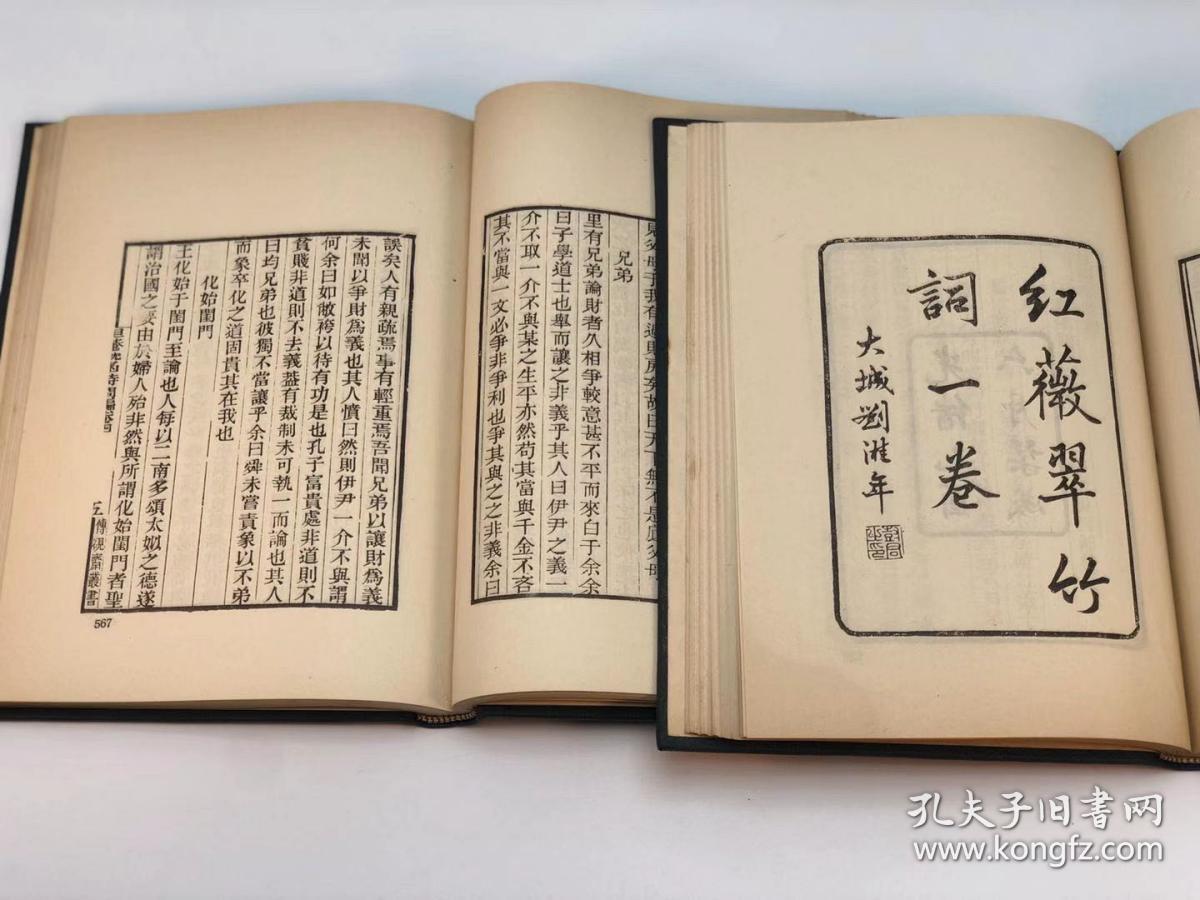 兄弟
里有兄弟論財者久相爭較意甚不平而來白于余余
曰子學道士也舉而讓之非義乎其人曰伊尹之義一
介不取一介不與某之生平亦然苟其當與千金不吝
其不當與一文必爭非爭利也爭其與之之非義余曰
誤矣人有親疏焉事有輕重焉吾聞兄弟以讓財爲義
未聞以爭財爲義也其人憤曰然則伊尹一介不與謂
何余曰如敝袴以待有功是也孔子富貴處非道則不
貧賤非道則不去義蓋有裁制未可執一而論也其人
曰均兄弟也彼獨不當讓乎余曰舜未嘗責象以不弟
而象卒化之道固貴其在我也
化始閨門
王化始于閨門至論也人每以二南多頌太姒之德遂
謂治國之要由於婦人殆非然與所謂化始閨門者聖
五
傳硯齋叢書
567
红薇翠竹
詞一卷
大城劉溎年
孔夫子旧书网
www.kongfz.com